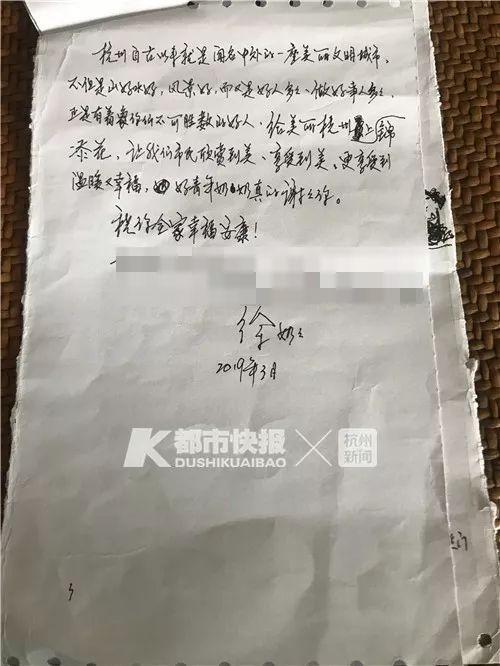 杭州自古以来就是闻名中外的一座美丽文明城市,
不但是山好水好,风景好,而又是好人多、做好事人多,
正是有着象你们不可胜数的好人,给美丽杭州上锦
添花,让我们市民欣赏到美、享受到美、更享受到
温暖又幸福,好青年奶奶真的谢谢你。
祝你全家幸福安康!
徐奶奶
2019年3月
K都市快报
DUSHIKUAIBAO
×
杭州
新闻
3